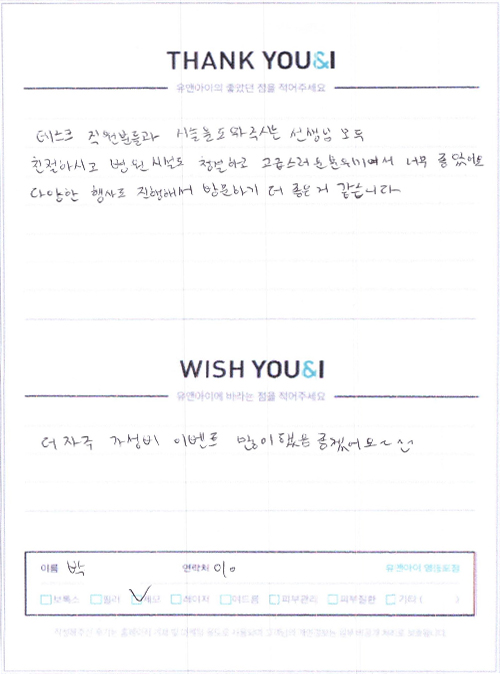 THANK YOU&I
유앤아이의 좋았던 점을 적어주세요
데스크 직원분들과 시술 도와주시는 선생님 모두
친절하시고 병원 시설도 청결하고 고급스러운 분위기여서 너무 좋았어요
다양한 행사도 진행해서 방문하기 더 좋은거 같습니다
WISH YOU&I
유앤아이에 바라는 점을 적어주세요
더 자주 가성비 이벤트 많이 했음 좋겠어요~
이름 박 연락처 010 유앤아이 영등포점
보톡스 필러 제모 레이저 여드름 피부관리 피부질환 기타 ( )